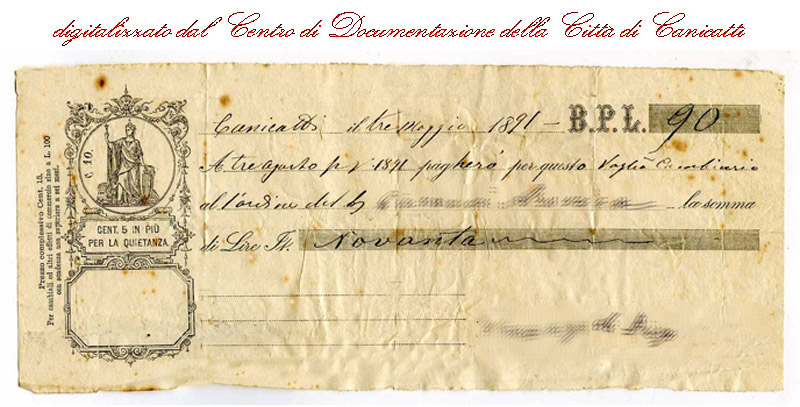 digitalizzato dal Centro di Documentazione della Città di Canicattì
Prezzo complessivo Cent. 15.
Per cambiali ed altri effetti di commercio sino a L. 100
con scadenza non superiore a sei mesi.
C. 10.
CENT. 5 IN PIÙ
PER LA QUIETANZA
Canicattì il tre Maggio 1891 - B.P.L. 90
A tre agosto p v 1891 pagherò per questo Vaglia Cambiario
all'ordine del la somma
di Lire It. Novanta